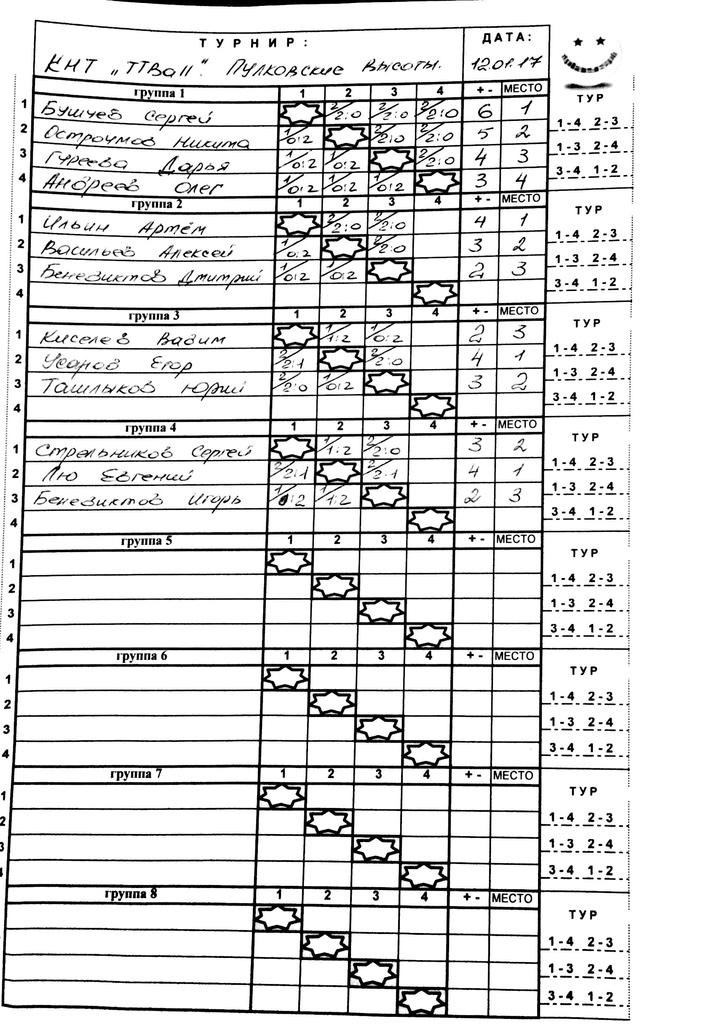 ТУРНИР: ДАТА:
КНТ „ТТВаll". Пулковские высоты. 12.01.17
группа 1 1 2 3 4 + - МЕСТО
1 Бушуев Сергей 2/2:0 2/2:0 2/2:0 6 1
2 Остроумов Никита 1/0:2 2/2:0 2/2:0 5 2
3 Гуреева Дарья 1/0:2 1/0:2 2/2:0 4 3
4 Андреев Олег 1/0:2 1/0:2 1/0:2 3 4
ТУР
1-4 2-3
1-3 2-4
3-4 1-2
группа 2 1 2 3 4 + - МЕСТО
1 Ильин Артём 2/2:0 2/2:0 4 1
2 Васильев Алексей 1/0:2 2/2:0 3 2
3 Бенедиктов Дмитрий 1/0:2 1/0:2 2 3
4
ТУР
1-4 2-3
1-3 2-4
3-4 1-2
группа 3 1 2 3 4 + - МЕСТО
1 Киселев Вадим 1/1:2 1/0:2 2 3
2 Усаров Егор 2/2:1 2/2:0 4 1
3 Ташлыков Юрий 2/2:0 1/0:2 3 2
4
ТУР
1-4 2-3
1-3 2-4
3-4 1-2
группа 4 1 2 3 4 + - МЕСТО
1 Стрельников Сергей 1/1:2 2/2:0 3 2
2 Лю Евгений 2/2:1 2/2:1 4 1
3 Бенедиктов Игорь 1/0:2 1/1:2 2 3
4
ТУР
1-4 2-3
1-3 2-4
3-4 1-2
группа 5 1 2 3 4 + - МЕСТО
1
2
3
4
ТУР
1-4 2-3
1-3 2-4
3-4 1-2
группа 6 1 2 3 4 + - МЕСТО
1
2
3
4
ТУР
1-4 2-3
1-3 2-4
3-4 1-2
группа 7 1 2 3 4 + - МЕСТО
1
2
3
4
ТУР
1-4 2-3
1-3 2-4
3-4 1-2
группа 8 1 2 3 4 + - МЕСТО
ТУР
1-4 2-3
1-3 2-4
3-4 1-2